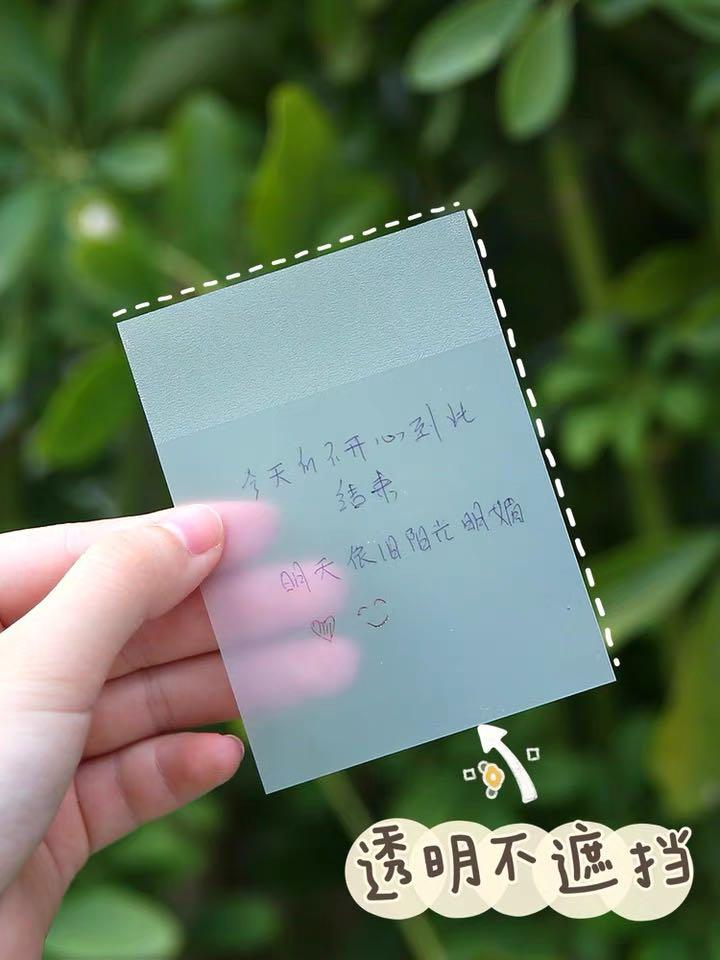 今天的不开心到此
结束
明天依旧阳光明媚
透明不遮挡